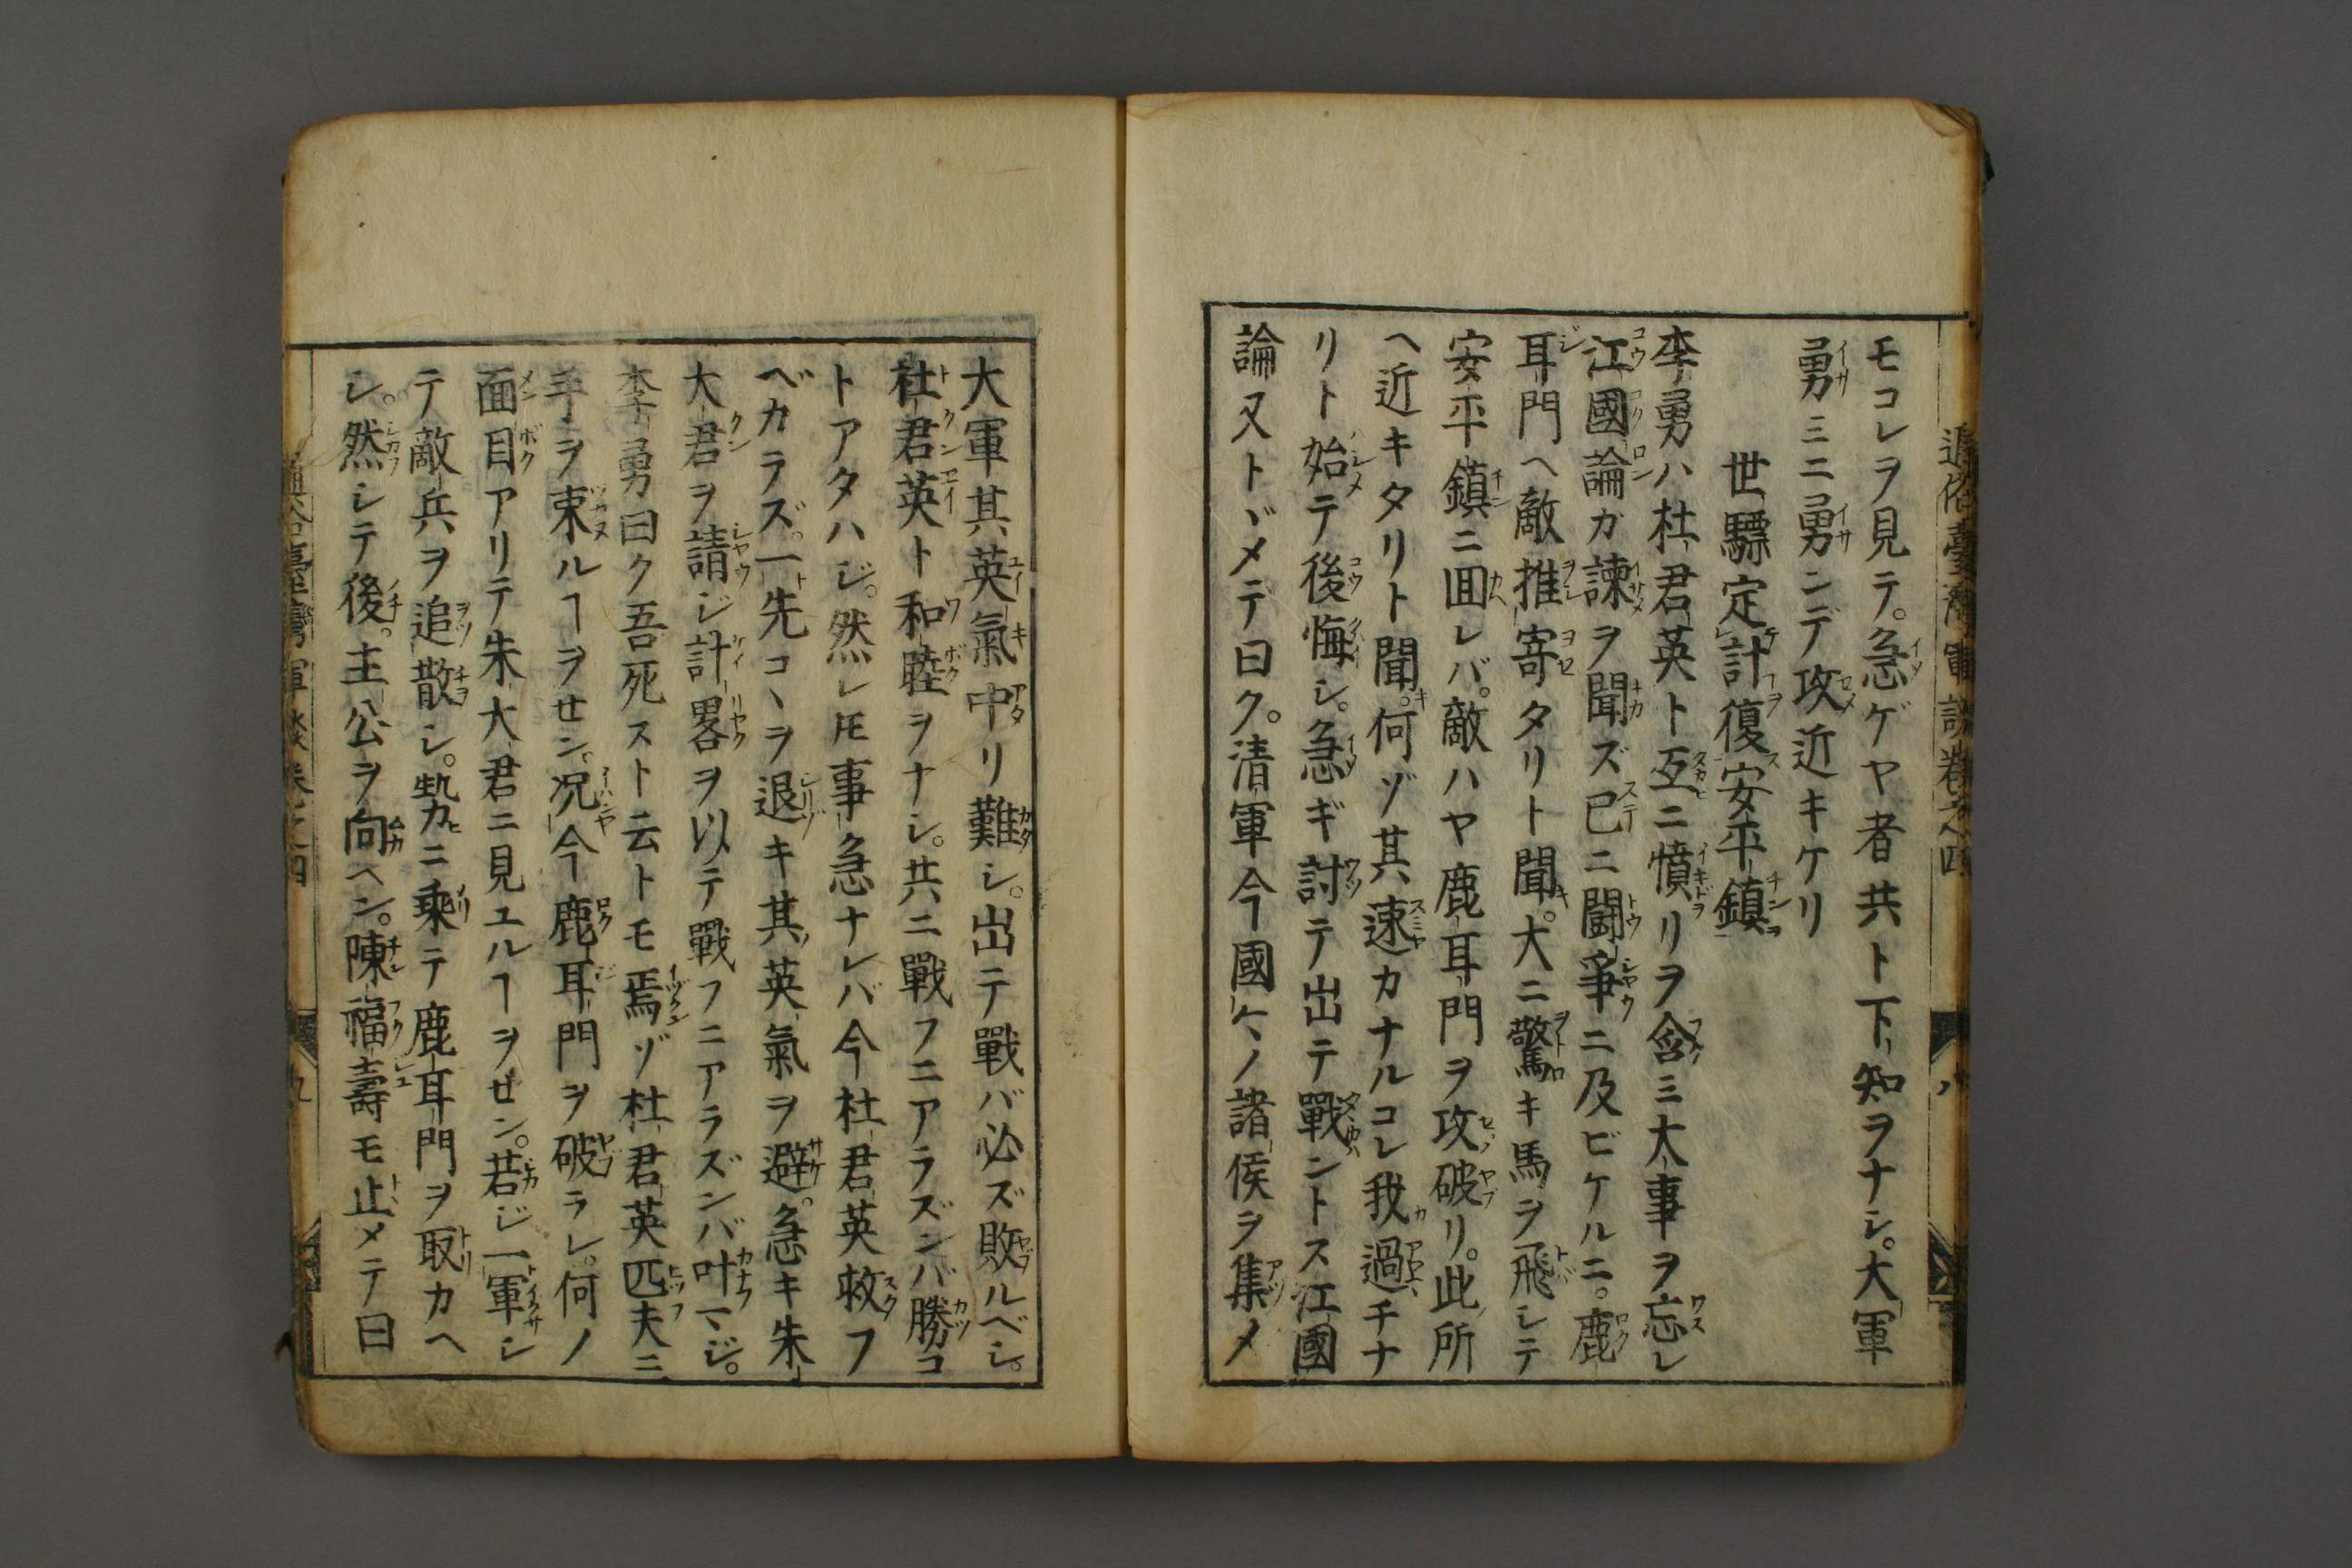 モコレヲ見テ。急ゲヤ者共ト下知ヲナシ。大軍
勇ミニ勇ンデ攻近キケリ
世驃定計復安平鎮
李勇ハ杜君英ト互ニ憤リヲ含ミ大事ヲ忘レ
江國論ガ諫ヲ聞ズ已ニ闘爭ニ及ビケルニ。鹿
耳門ヘ敵推寄タリト聞。大ニ驚キ馬ヲ飛シテ
安平鎮ニ囬レバ。敵ハヤ鹿耳門ヲ攻破リ。此所
ヘ近キタリト聞。何ゾ其速カナルコレ我過チナ
リト始テ後悔シ。急ギ討テ出テ戰ントス江國
論又トヾメテ曰ク。清軍今國々ノ諸侯ヲ集メ
大軍其英氣中リ難シ。出テ戰バ必ズ敗ルベシ。
杜君英ト和睦ヲナシ。共ニ戰フニアラズンバ勝コ
トアタハジ。然レ𪜈事急ナレバ今杜君英救フ
ベカラズ。一先コヽヲ退キ其英氣ヲ避。急キ朱
大君ヲ請ジ計畧ヲ以テ戰フニアラズンバ叶マジ。
李勇曰ク吾死スト云トモ焉ゾ杜君英匹夫ニ
手ヲ束ルヿヲせン。况今鹿耳門ヲ破ラレ。何ノ
面目アリテ朱大君ニ見ユルヿヲせン。若ジ一軍シ
テ敵兵ヲ追散シ。勢ニ乘テ鹿耳門ヲ取カヘ
シ。然シテ後。主公ヲ向ヘン。陳福壽モ止メテ曰
通俗臺灣軍談卷之四
通俗臺灣軍談卷之四